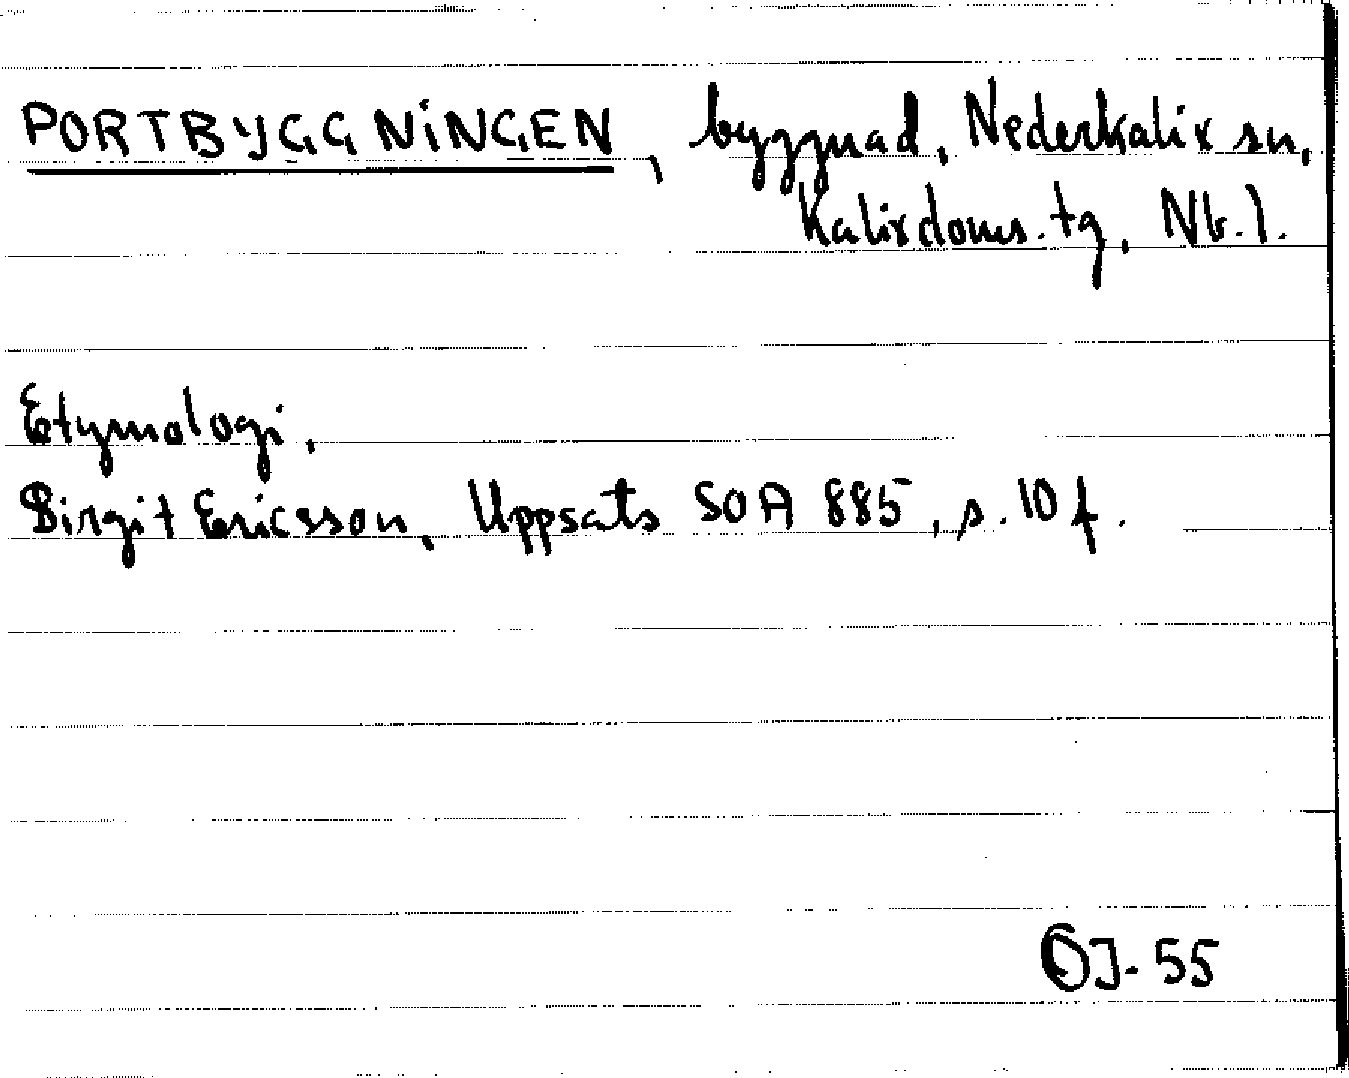 PORTBYGGNINGEN, byggnad, Nederkalix sn,
Kalix doms. tg, Nb. l.
Etymologi.
Birgit Ericsson, Uppsats SOA 885, s. 10 f.
OJ-55